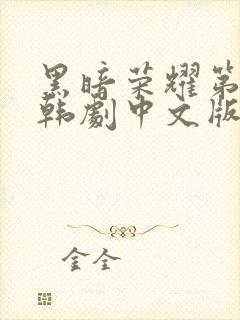 黑暗荣耀第
韩剧中文版
金全